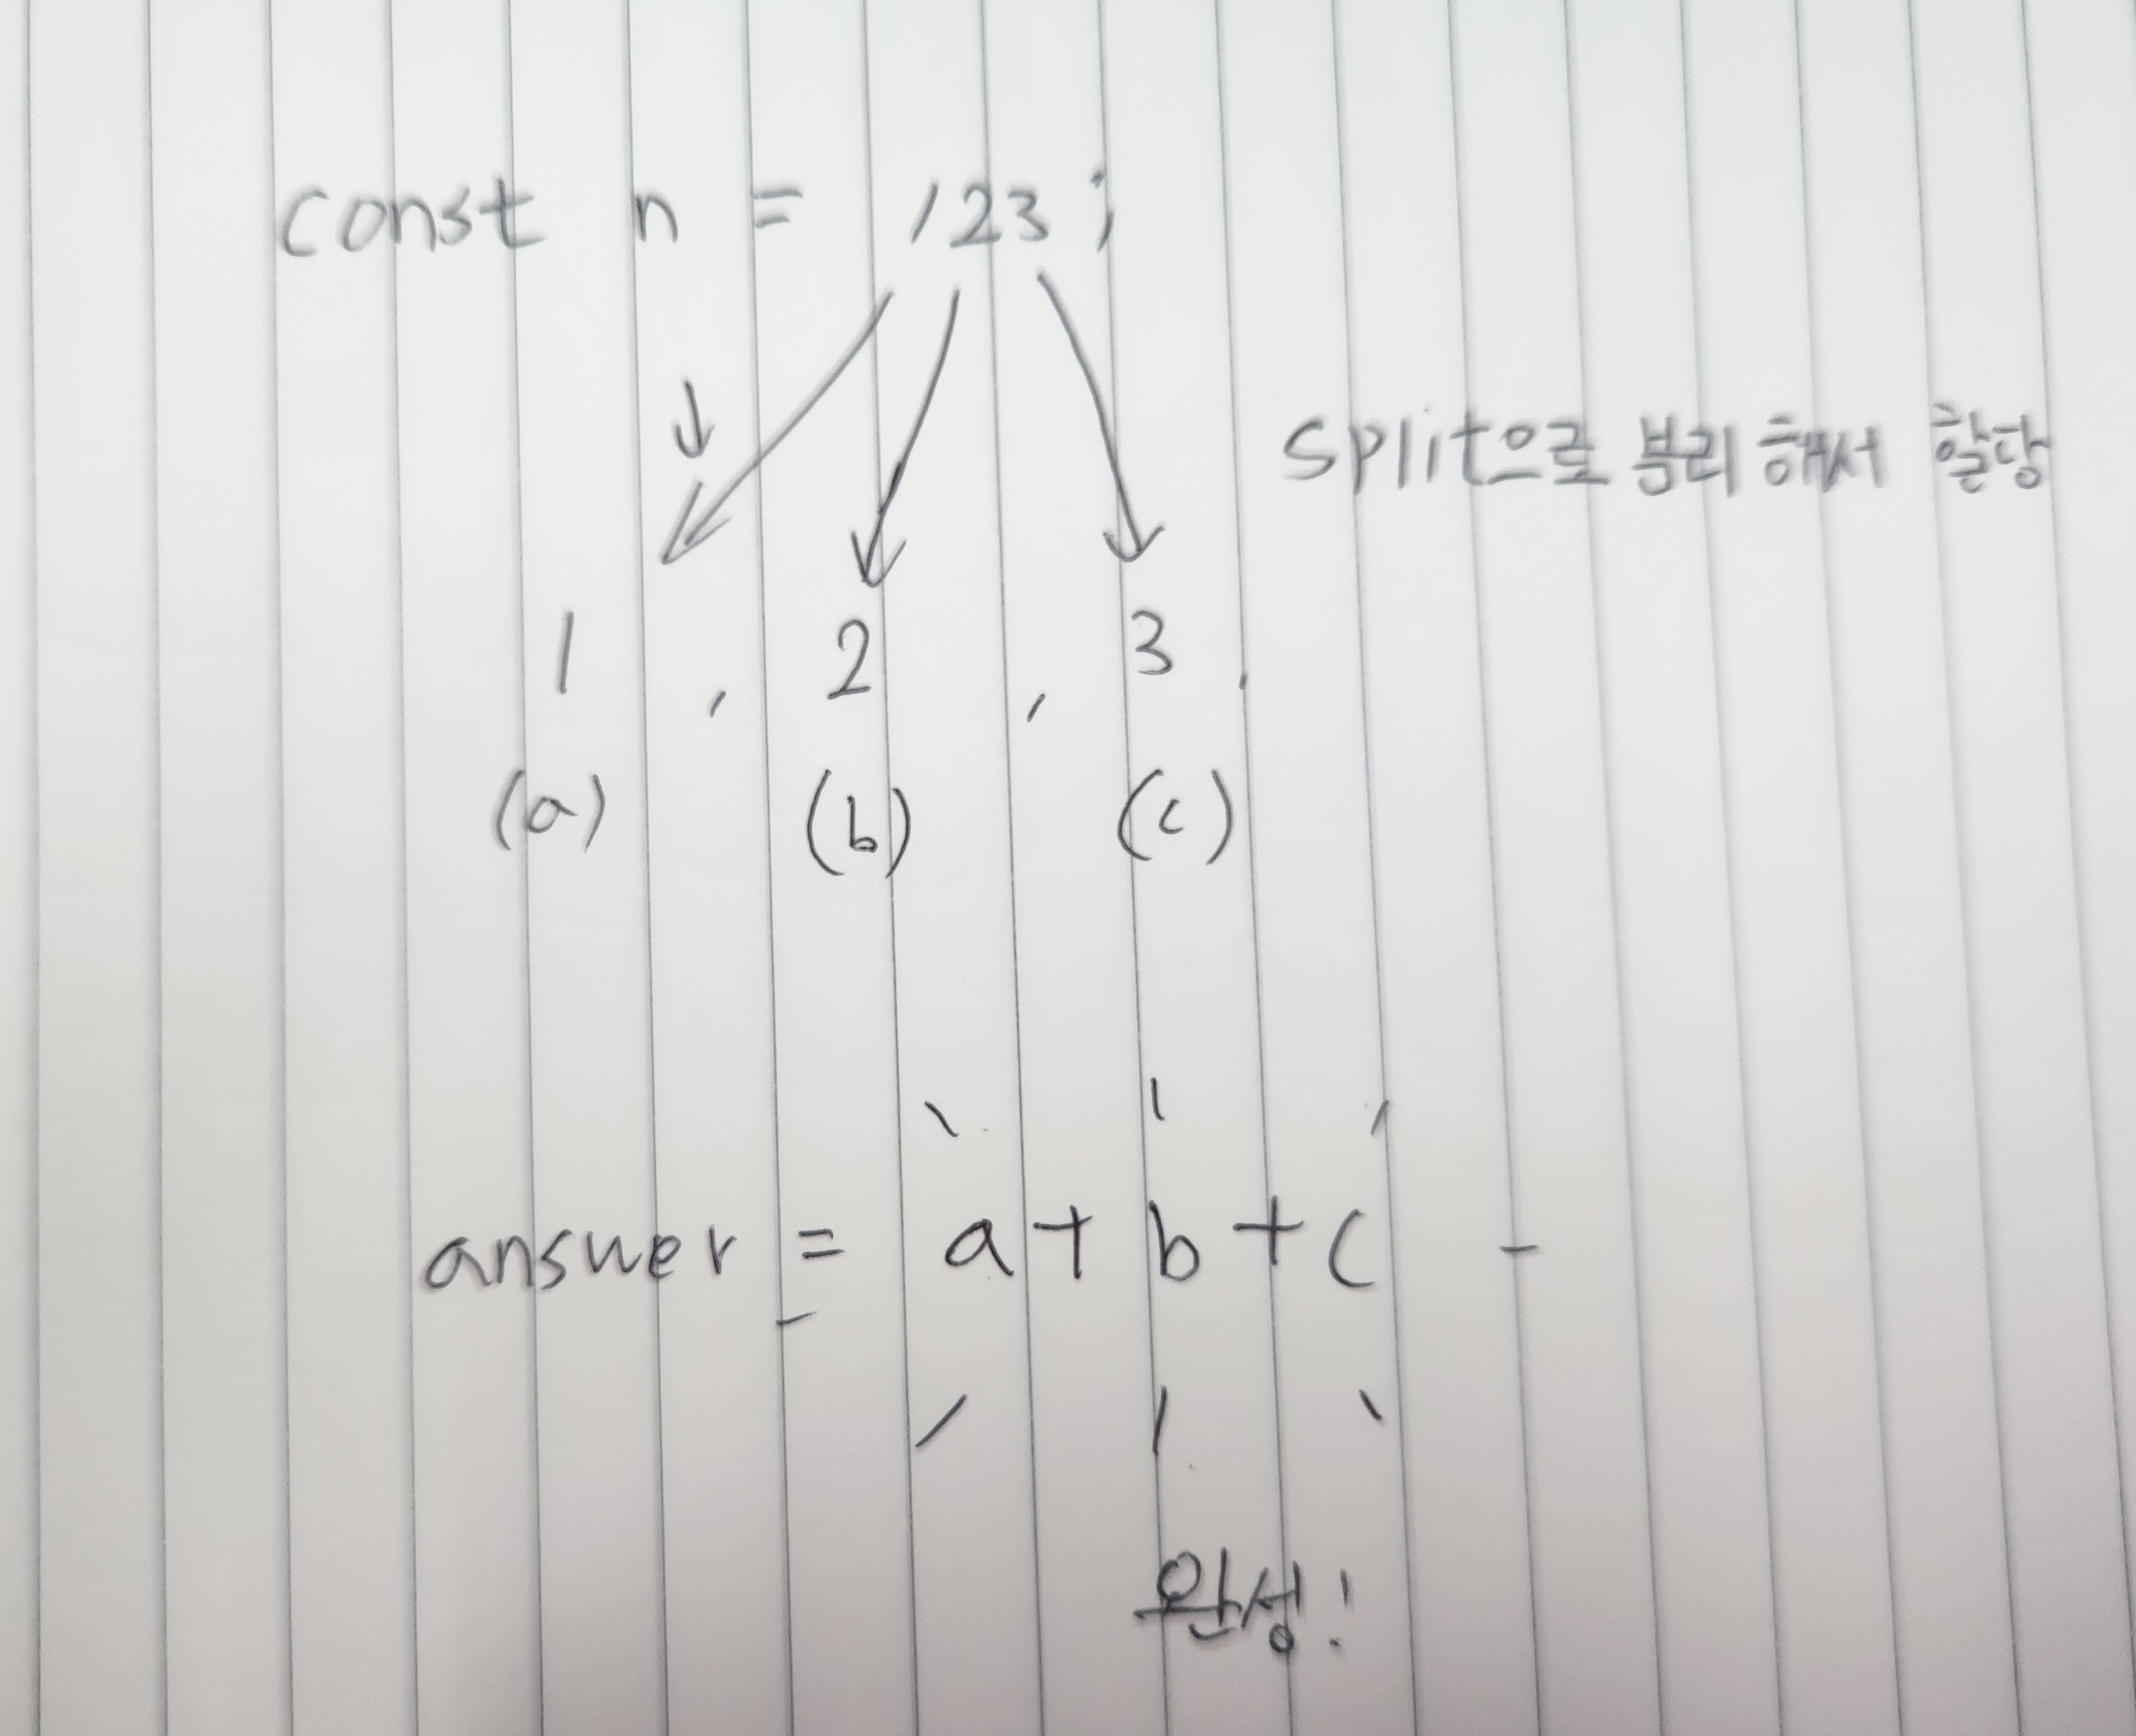 const n = 123;
split으로 분리해서 할당
1 , 2 , 3 .
(a) (b) (c)
answer = a + b + c
완성!